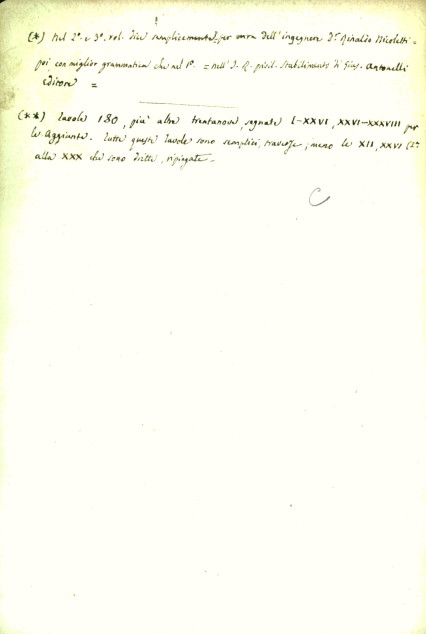 (*) Nel 2°. e 3°. vol. dice semplicemente = per cura dell'ingegnere Dr. Rinaldo Nicoletti =
poi con miglior grammatica che nel 1°. = nell' I. R. privil. Stabilimento di Gius. Antonelli
Editore =
(**) Tavole 180, più altre trentanove, segnate I-XXVI, XXVI-XXXVIII per
le Aggiunte. Tutte queste tavole sono semplici, traverse, meno le XII, XXVI (2ª)
alla XXX che sono dritte, ripiegate.
C